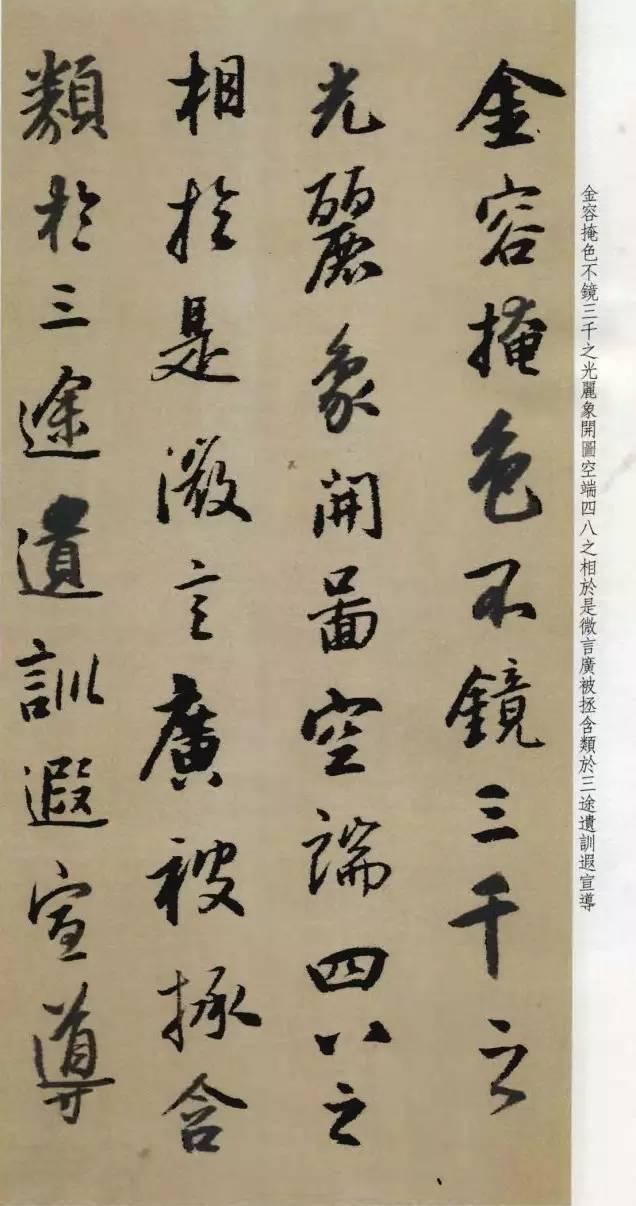 金容掩色不鏡三千之
光麗象開圖空端四八之
相於是微言廣被拯含
類於三途遺訓遐宣導
金容掩色不鏡三千之光麗象開圖空端四八之相於是微言廣被拯含類於三途遺訓遐宣導